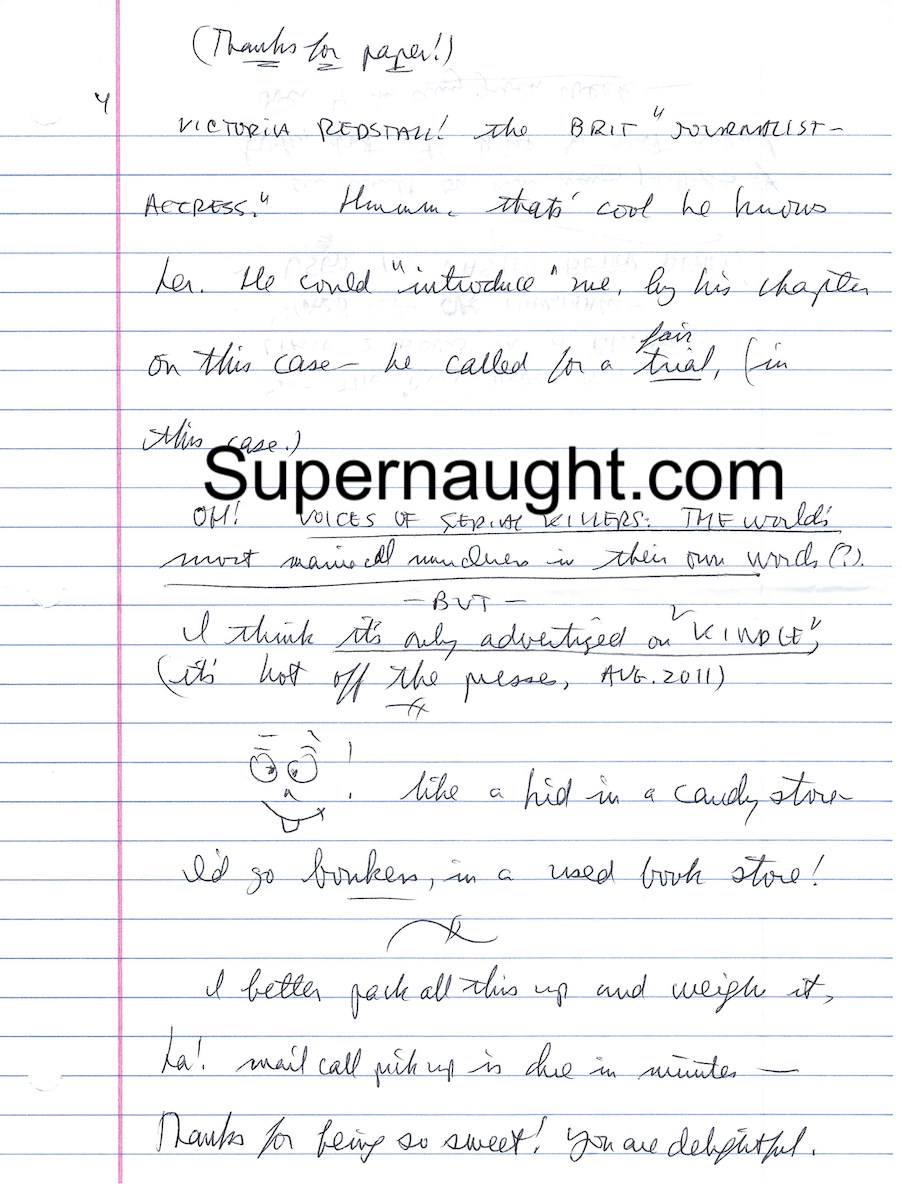 (Thanks for paper!)
4
VICTORIA REDSTALL! the BRIT "JOURNALIST-
ACTRESS." Hmmm. thats' cool he knows
her. He could "introduce" me, by his chapter
on this case - he called for a fair trial, (in
this case.)
Supernaught.com
OH! VOICES OF SERIAL KILLERS: THE World's
most maniacal murderers in their own words (?).
- BUT -
I think it's only advertized on "KINDLE",
(it's hot off the presses, AUG. 2011)
! like a kid in a candy store
I'd go bonkers, in a used book store!
I better pack all this up and weigh it,
ha! mail call pick up is due in minutes —
Thanks for being so sweet! You are delightful.